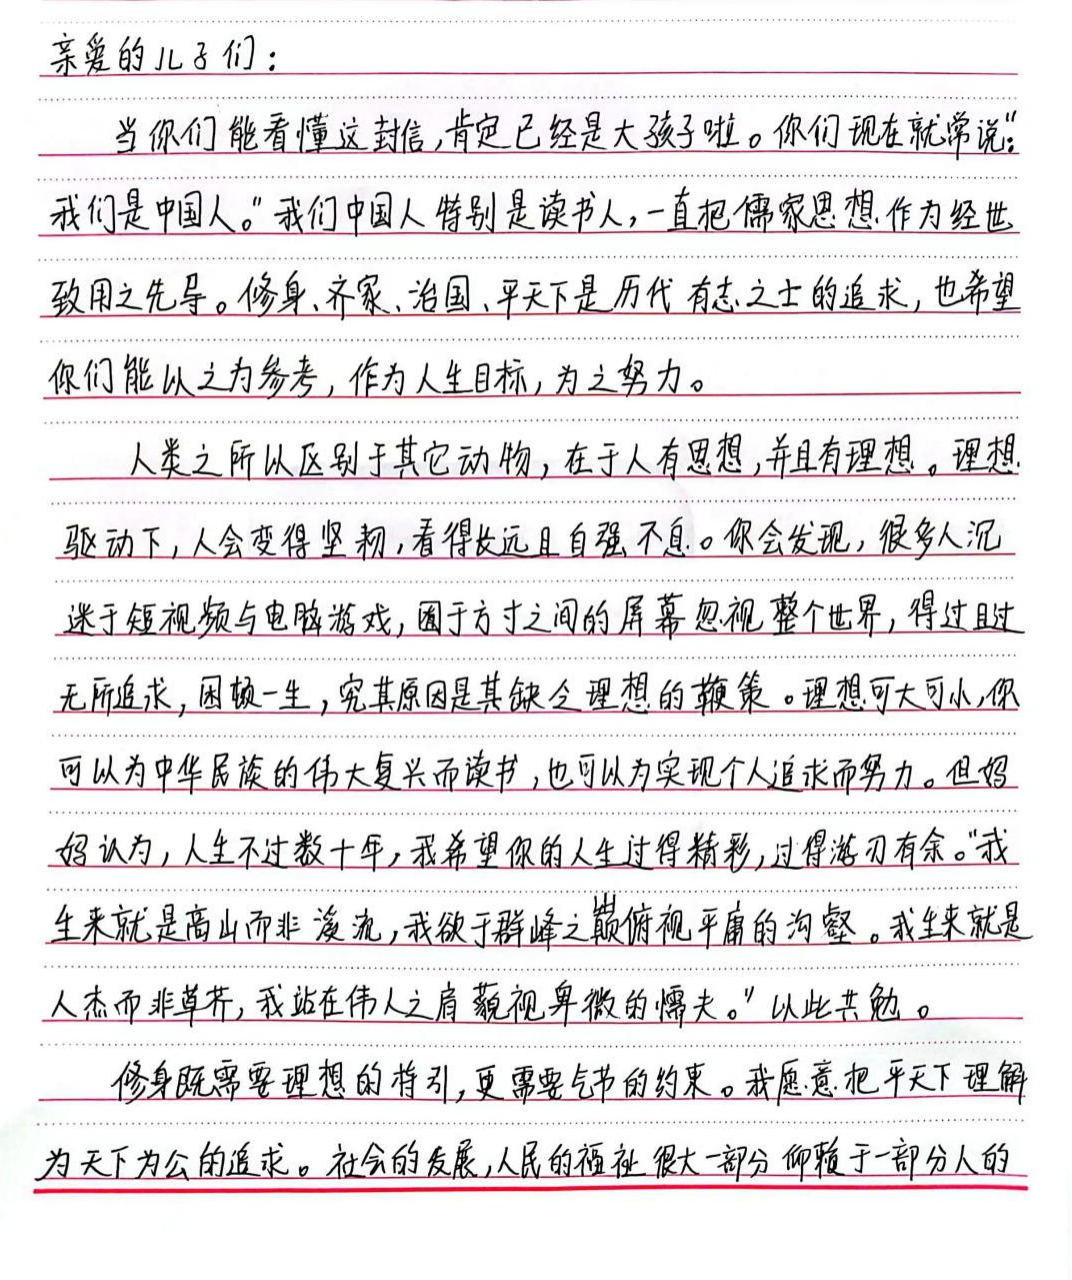 亲爱的儿子们：
当你们能看懂这封信，肯定已经是大孩子啦。你们现在就常说："
我们是中国人。"我们中国人特别是读书人，一直把儒家思想作为经世
致用之先导。修身、齐家、治国、平天下是历代有志之士的追求，也希望
你们能以之为参考，作为人生目标，为之努力。
人类之所以区别于其它动物，在于人有思想，并且有理想。理想
驱动下，人会变得坚韧，看得长远且自强不息。你会发现，很多人沉
迷于短视频与电脑游戏，囿于方寸之间的屏幕忽视整个世界，得过且过
无所追求，困顿一生，究其原因是其缺乏理想的鞭策。理想可大可小，你
可以为中华民族的伟大复兴而读书，也可以为实现个人追求而努力。但妈
妈认为，人生不过数十年，我希望你的人生过得精彩，过得游刃有余。"我
生来就是高山而非溪流，我欲于群峰之巅俯视平庸的沟壑。我生来就是
人杰而非草芥，我站在伟人之肩藐视卑微的懦夫。"以此共勉。
修身既需要理想的指引，更需要气节的约束。我愿意把平天下理解
为天下为公的追求。社会的发展，人民的福祉很大一部分仰赖于一部分人的